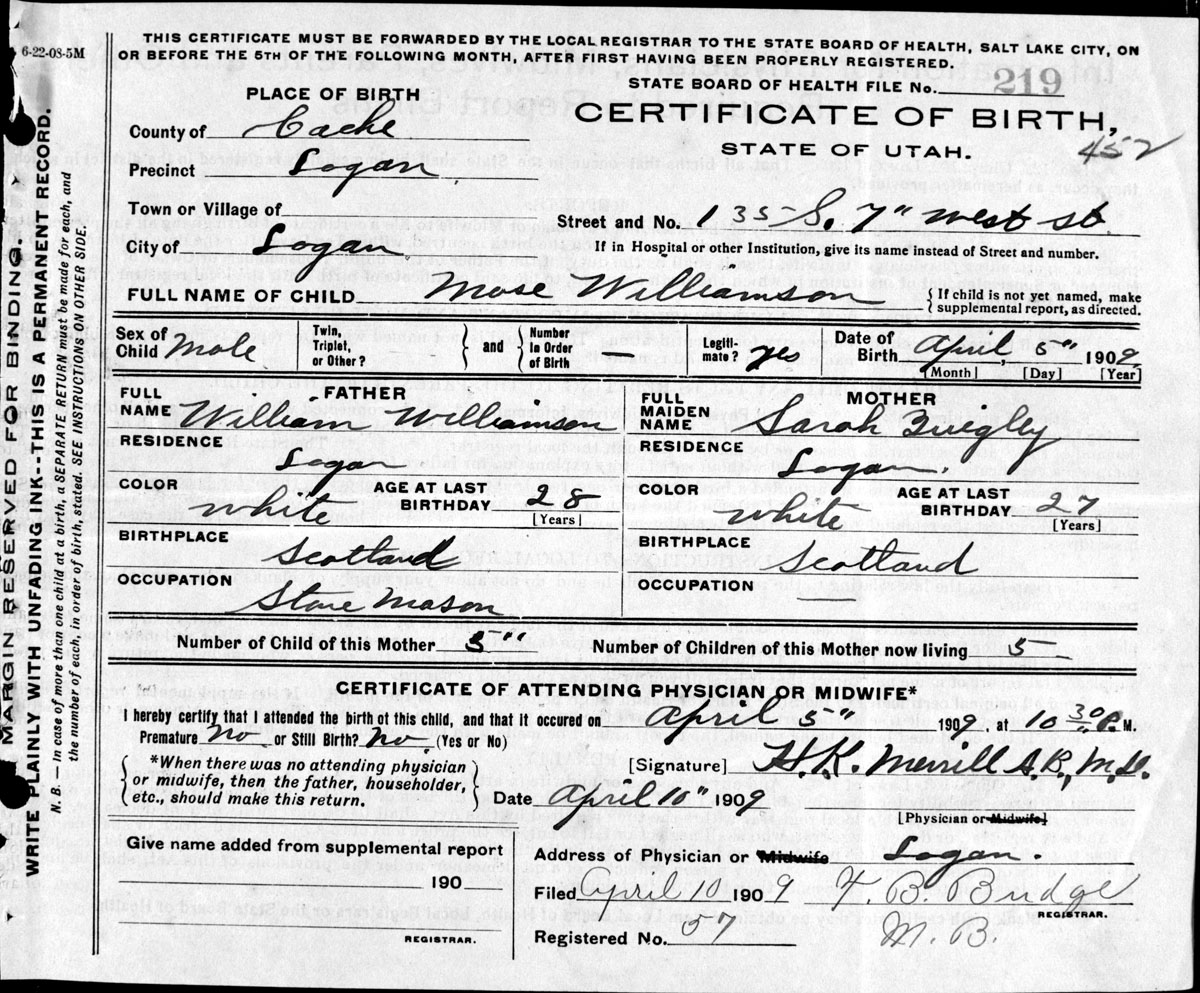 6-22-08-5M
THIS CERTIFICATE MUST BE FORWARDED BY THE LOCAL REGISTRAR TO THE STATE BOARD OF HEALTH, SALT LAKE CITY, ON
OR BEFORE THE 5TH OF THE FOLLOWING MONTH, AFTER FIRST HAVING BEEN PROPERLY REGISTERED.
STATE BOARD OF HEALTH FILE No. 219
PLACE OF BIRTH
CERTIFICATE OF BIRTH,
STATE OF UTAH. 452
County of Cache
Precinct Logan
Town or Village of
Street and No. 135 S. 7" West St.
City of Logan
If in Hospital or other Institution, give its name instead of Street and number.
FULL NAME OF CHILD Mose Williamson {If child is not yet named, make supplemental report, as directed.
Sex of Child Male
Twin, Triplet, or Other? } and { Number in Order of Birth
Legitimate? yes
Date of Birth April 5" 1909
[Month] [Day] [Year]
FATHER
FULL NAME William Williamson
RESIDENCE
Logan
COLOR white
AGE AT LAST BIRTHDAY 28
[Years]
BIRTHPLACE
Scotland
OCCUPATION
Stone Mason
MOTHER
FULL MAIDEN NAME Sarah Quigley
RESIDENCE
Logan.
COLOR white
AGE AT LAST BIRTHDAY 27
[Years]
BIRTHPLACE
Scotland
OCCUPATION —
Number of Child of this Mother 5"
Number of Children of this Mother now living 5
CERTIFICATE OF ATTENDING PHYSICIAN OR MIDWIFE*
I hereby certify that I attended the birth of this child, and that it occured on April 5" 1909, at 10 30 P. M.
Premature No or Still Birth? No (Yes or No)
{*When there was no attending physician
or midwife, then the father, householder,
etc., should make this return.}
[Signature] H.K. Merrill A.B., M.D.
Date April 10" 1909
[Physician or Midwife]
Give name added from supplemental report
190
REGISTRAR.
Address of Physician or Midwife Logan.
Filed April 10 1909 B. Budge
REGISTRAR.
M. B.
Registered No. 57
MARGIN RESERVED FOR BINDING.
WRITE PLAINLY WITH UNFADING INK--THIS IS A PERMANENT RECORD.
N. B. — In case of more than one child at a birth, a SEPARATE RETURN must be made for each, and
the number of each, in order of birth, stated. SEE INSTRUCTIONS ON OTHER SIDE.